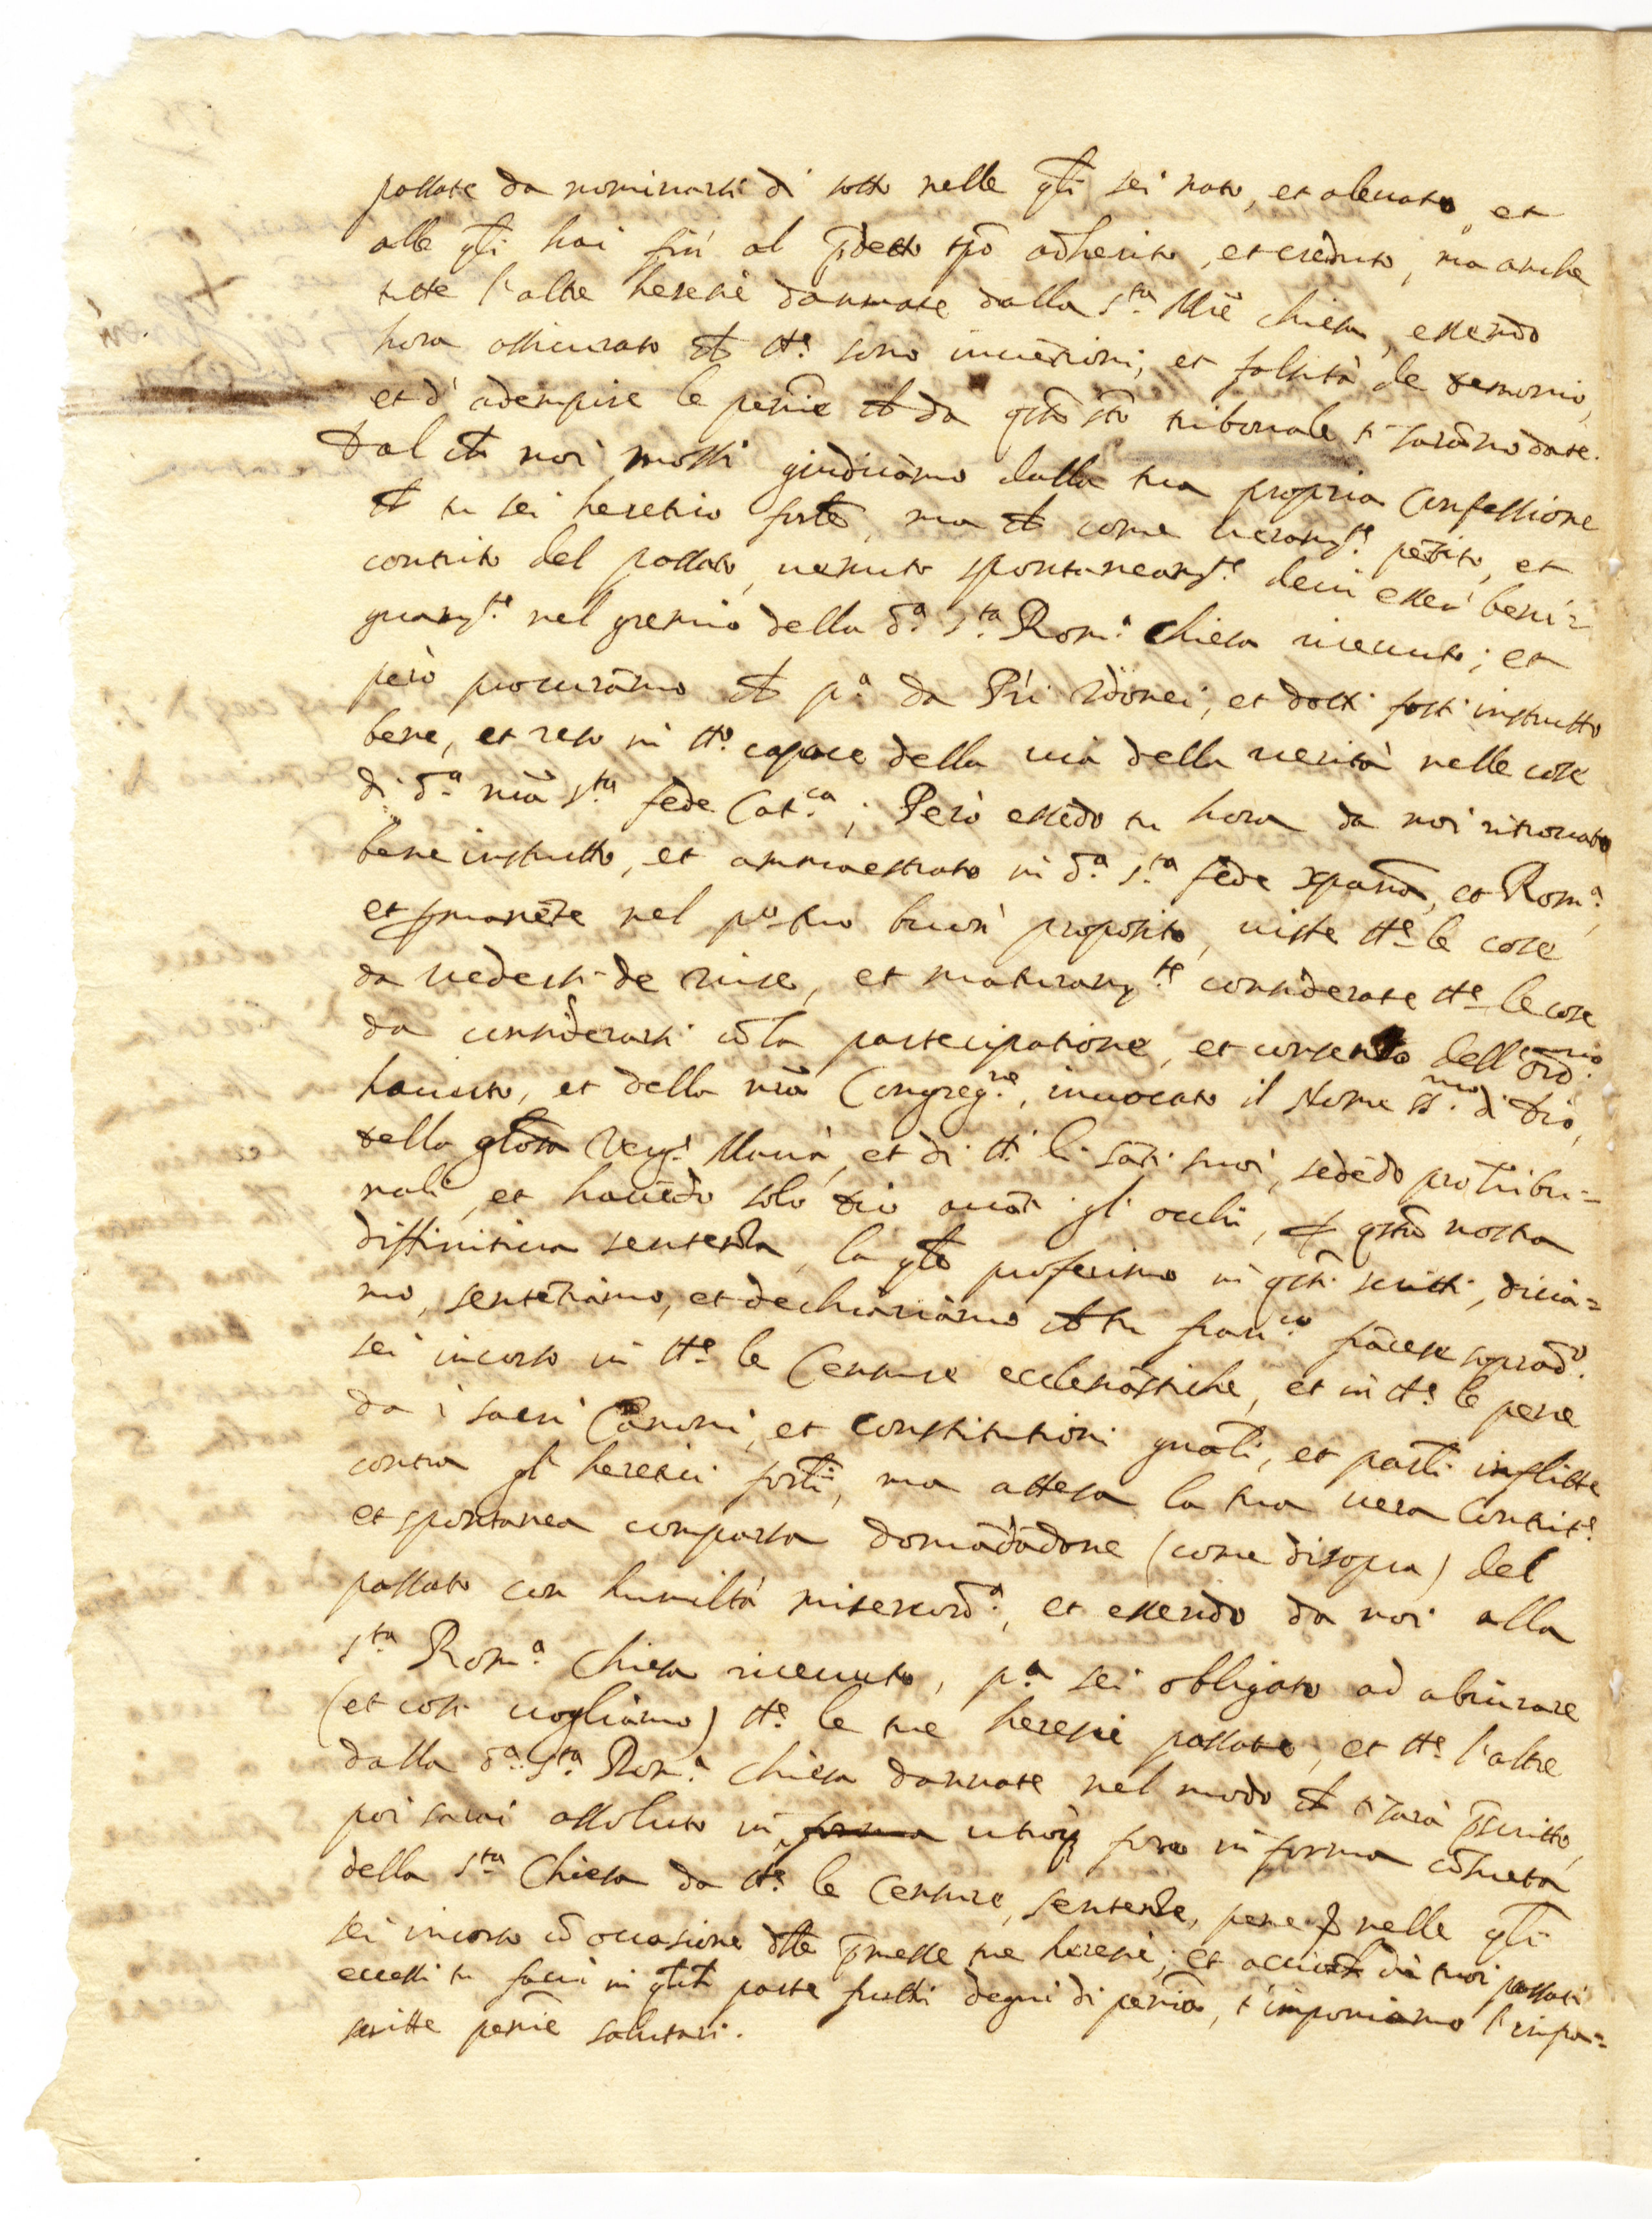 passate da nominarsi di sotto nelle q̃li sei nato, et alevato, et
alle q̃li hai fin' al p̃detto tp̃o adherito, et creduto, ma anche
tutte l'altre heresie dannate dalla s.ta M̃re chiesa, essendo
hora assicurato ch̃ tt.e sono invẽtioni, et falsità de demonio,
et d'adempire le penit̃e ch̃ da q̃sto sto tribunale ti sarãno date.
Dal ch̃ noi mossi giudicãmo dalla tua propria Confessione
ch̃ tu sei heretico for̃le, ma ch̃ come veram.te pẽtito, et
contrito del passato, venuto spontaneam.te devi esser beni=
gnam.te nel gremio della d.a s.ta Rom.a Chiesa ricevuto; et
però procurãmo ch̃ p.a da P̃ri idonei, et dotti fosti instrutto
bene, et reso in tt.o capace della via della verità nelle cose
di d.a nr̃a s.ta fede Cat.ca; Però essẽdo tu hora da noi ritrovato
bene instrutto, et ammaestrato in d.a s.ta fede xpana, et Rom.a,
et p̃manẽte nel p.o tuo buon proposito, viste tt.e le cose
da vedersi de iure, et maturam.te considerate tt.e le cose
da considerarsi cõ la participatione, et consenso dell'Ord.rio
havuto, et della nr̃a Congreg.ne, invocato il Nome SS.mo di Dio,
della glor̃sa Verg.e Maria, et di tt.i li sãti suoi, sedẽdo pro Tribu=
nali, et havẽdo solo Dio avãti gl'occhi, p̱ q̃sta nostra
diffinitiva sentenza, la q̃le proferimo in q̃sti scritti, dicia=
mo, sentẽtiamo, et dechiariamo ch̃ tu fran.co frãcese soprad.o
sei incorso in tt.e le Censure ecclesiastiche, et in tt.e le pene
da i sacri Canoni, et Constitutioni gñali, et par̃li inflitte
contra gl'heretici for̃li, ma attesa la tua vera Contrit.e
et spontanea comparsa domãdãdone (come di sopra) del
passato con humiltà misericord.a, et essendo da noi alla
s.ta Rom.a Chiesa ricevuto, p.a sei obligato ad abiurare
(et così vogliamo) tt.e le tue heresie passate, et tt.e l'altre
dalla d.a s.ta Rom.a Chiesa dannate nel modo ch̃ ti sarà p̃scritto,
poi sarai assoluto in forma utroq; foro in forma cõsueta
della s.ta Chiesa da tt.e le Censure, sentenze, pene nelle q̃li
sei incorso cõ occasione delle p̃messe tue heresie; et acciò ch̃ di tuoi passati
eccessi tu facci in q̃lche parte frutti degni di penit̃a, t'imponiamo l'infra=
scritte penit̃e salutari.